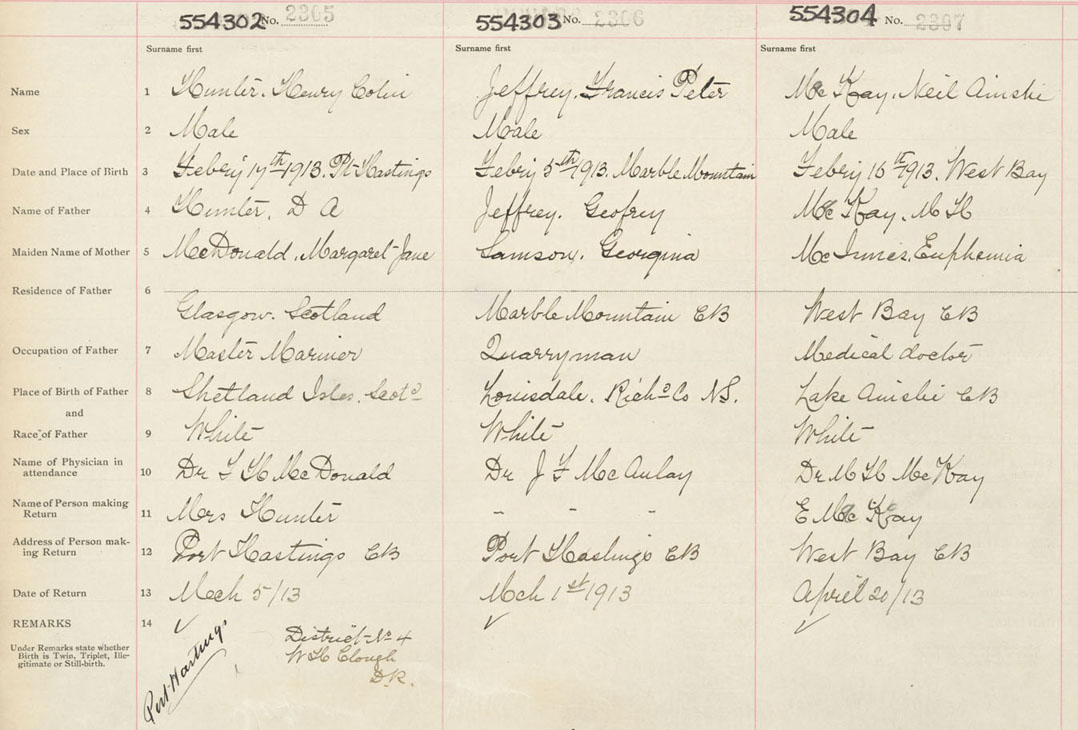 554302 No. 2305 554303 No. 2306 554304 No. 2307
Surname first Surname first Surname first
Name 1 Hunter. Henry Colin Jeffrey. Francis Peter McKay. Neil Ainslie
Sex 2 Male Male Male
Date and Place of Birth 3 Febry 17th 1913. Pt Hastings Febry 5th 1913. Marble Mountain Febry 16th 1913. West Bay
Name of Father 4 Hunter. D A Jeffrey. Geofrey McKay. M H
Maiden Name of Mother 5 McDonald. Margaret Jane Samson. Georgina McInnes. Euphemia
Residence of Father 6
Glasgow. Scotland Marble Mountain CB West Bay CB
Occupation of Father 7 Master Mariner Quarryman Medical doctor
Place of Birth of Father 8 Shetland Isles. Scotd Louisdale. Richd Co NS. Lake Ainslie CB
and
Race of Father 9 White White White
Name of Physician in
attendance 10 Dr McDonald Dr J F McAulay Dr M H McKay
Name of Person making
Return 11 Mrs Hunter " " " E McKay
Address of Person mak-
ing Return 12 Port Hastings CB Port Hastings CB West Bay CB
Date of Return 13 Mch 5/13 Mch 1st 1913 April 20/13
REMARKS 14 ✓ ✓ ✓
Under Remarks state whether
Birth is Twin, Triplet, Ille-
gitimate or Still-birth.
Port Hastings
District No 4
W H Clough
D.R.